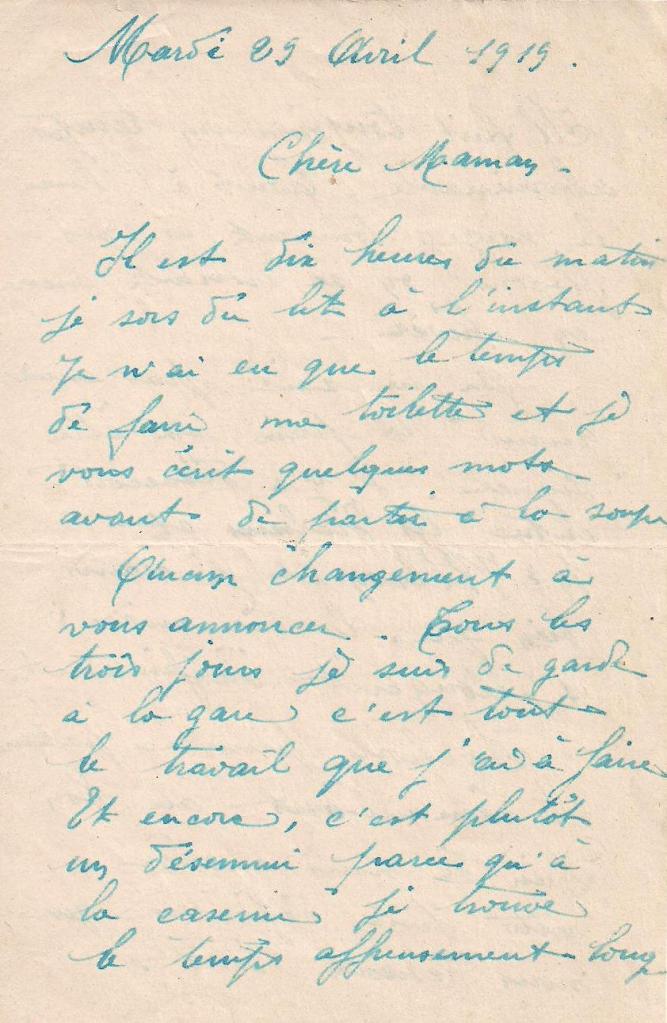 Mardi 29 Avril 1919.
Chère Maman -
Il est dix heures du matin
je sors du lit à l'instant
Je n'ai eu que le temps
de faire ma toilette et je
vous écrit quelques mots
avant de partir à la soupe
Aucun changement à
vous annoncer. Tous les
trois jours je suis de garde
à la gare c'est tout
le travail que j'ai à faire
Et encore, c'est plutôt
un désennui parce qu'à
la caserne je trouve
le temps affreusement long